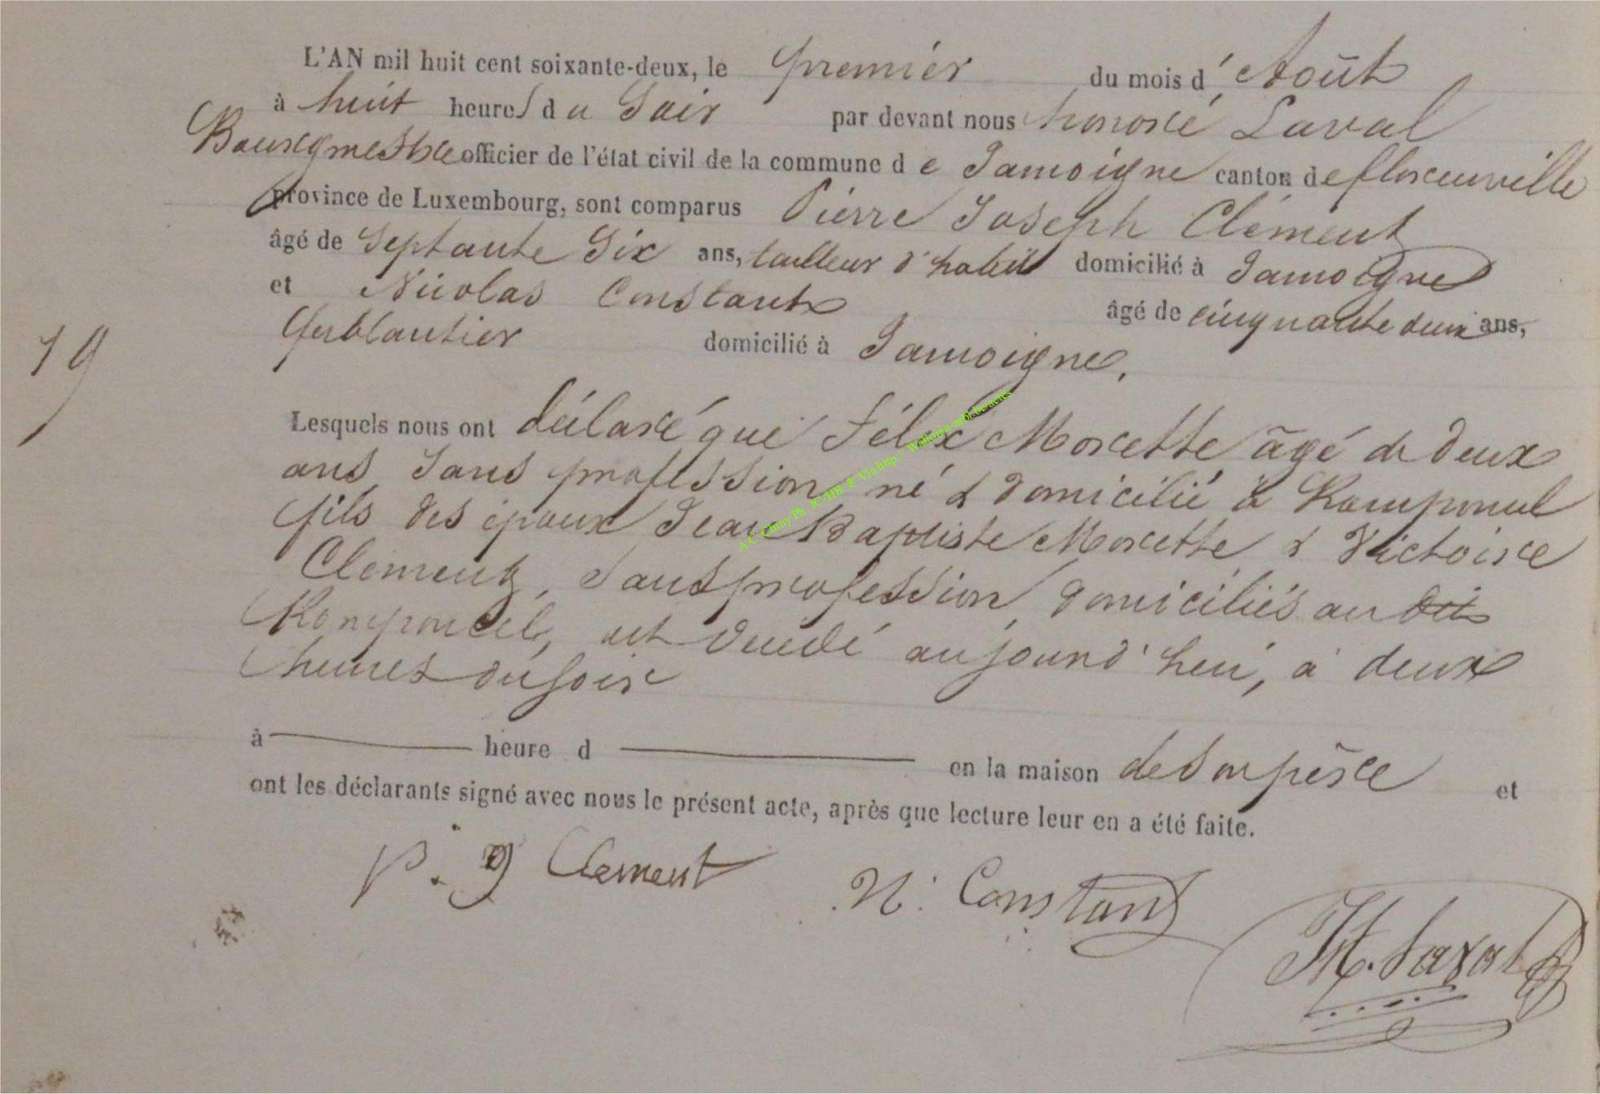 L'AN mil huit cent soixante-deux, le premier du mois d'Août
à huit heures du Soir par devant nous honoré Laval
Bourgmestre officier de l'état civil de la commune de Jamoigne canton de florenville
province de Luxembourg, sont comparus Pierre Joseph Clément
âgé de Septante Six ans, tailleur d'habit domicilié à Jamoigne
et Nicolas Constant âgé de cinquante deux ans,
ferblantier domicilié à Jamoigne.
19
Lesquels nous ont déclaré que Félix Morette âgé de deux
ans, Sans profession, né & domicilié à Romponcel
fils des époux Jean Baptiste Morette & Victoire
Clement, Sans profession, domiciliés au dit
Romponcel, est décédé aujourd'hui, à deux
heures du soir
à heure d en la maison de Son père et
ont les déclarants signé avec nous le présent acte, après que lecture leur en a été faite.
p. J Clement N. Constant
H. Laval